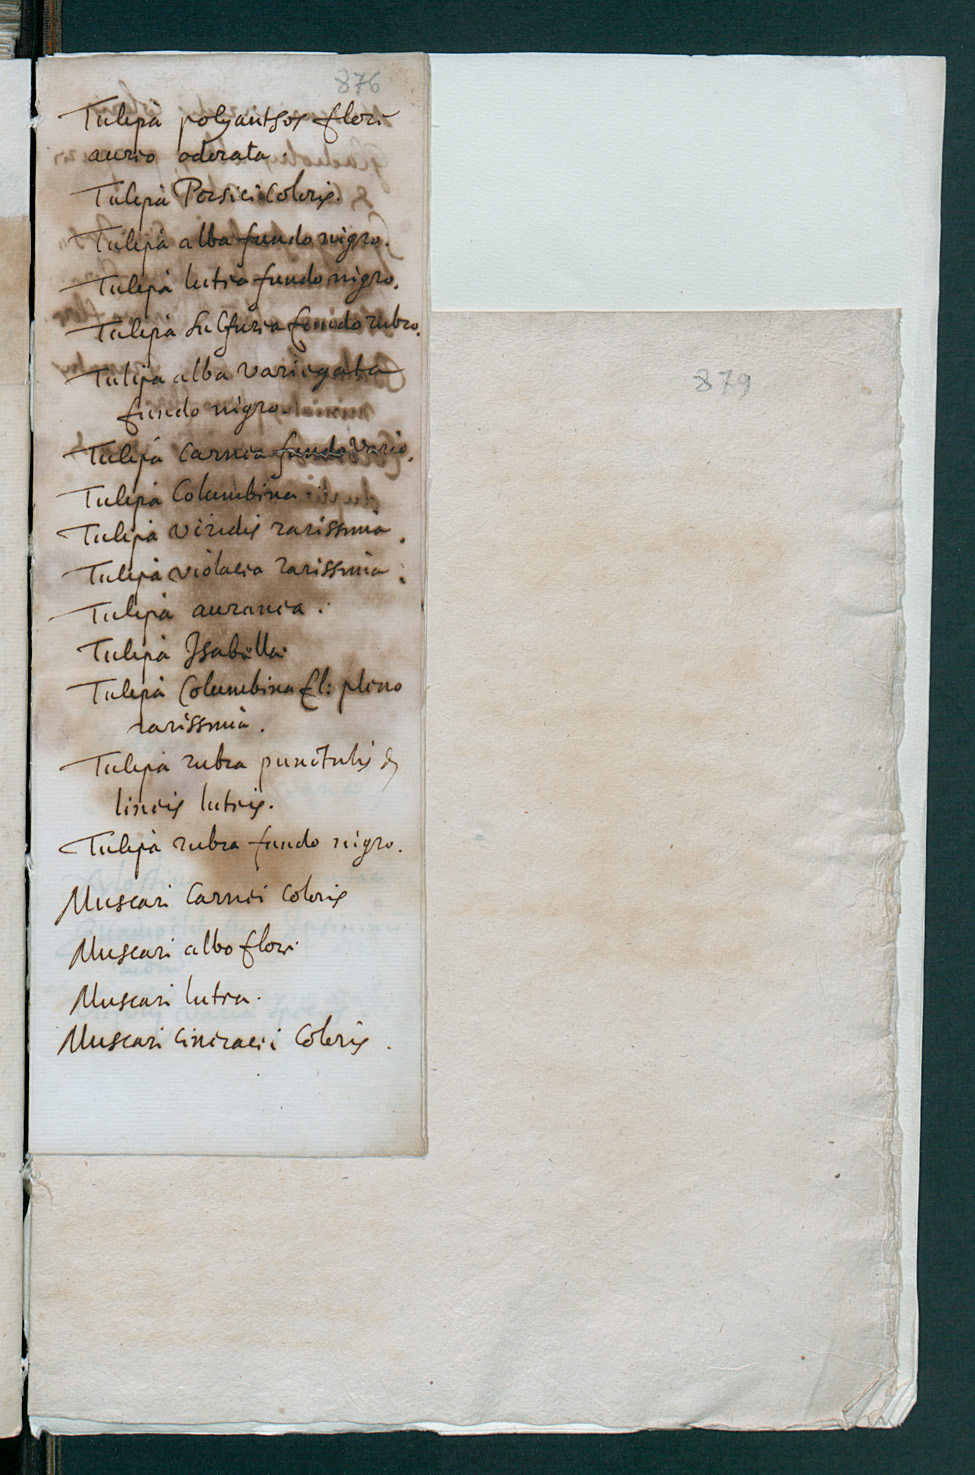 876
Tulipa polyanthos flore
aureo odorata.
Tulipa Persici Coloris.
Tulipa alba fundo nigro.
Tulipa lutea fundo nigro.
Tulipa Sulfurea fundo rubro.
Tulipa alba variegata
fundo nigro.
Tulipa Carnea fundo vario.
Tulipa Columbina.
Tulipa viridis rarissima.
Tulipa violacea rarissima.
Tulipa aurancea.
Tulipa Isabella
Tulipa Columbina fl: pleno
rarissima.
Tulipa rubra punctulis &
lineis luteis.
Tulipa rubra fundo nigro.
Muscari Carnei Coloris
Muscari albo flore
Muscari lutea.
Muscari Cineracei Coloris.
879